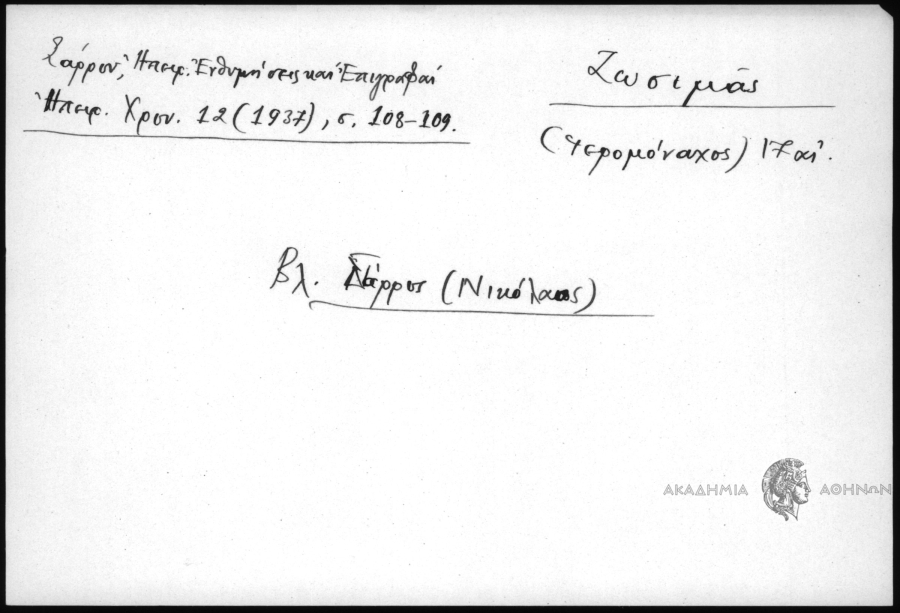 Σάρρου, Ἠπειρ. Ἐνθυμήσεις καὶ Ἐπιγραφαί
Ἠπειρ. Χρον. 12 (1937), σ. 108-109.
Ζωσιμᾶς
(Ἱερομόναχος) 17 αἰ.
Βλ. Σάρρος (Νικόλαος)
ΑΚΑΔΗΜΙΑ ΑΘΗΝΩΝ